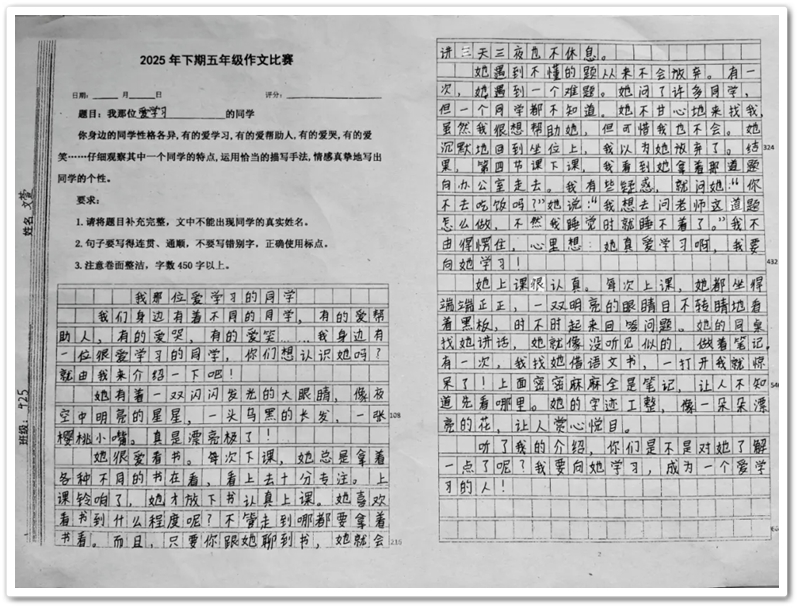 2025年下期五年级作文比赛
日期：____月____日 评分：____
题目：我那位爱学习的同学
你身边的同学性格各异，有的爱学习，有的爱帮助人，有的爱哭，有的爱
笑……仔细观察其中一个同学的特点，运用恰当的描写手法，情感真挚地写出
同学的个性。
要求：
1. 请将题目补充完整，文中不能出现同学的真实姓名。
2. 句子要写得连贯、通顺，不要写错别字，正确使用标点。
3. 注意卷面整洁，字数450字以上。
姓名
班级：425
我那位爱学习的同学
我们身边有着不同的同学，有的爱帮
助人，有的爱哭，有的爱笑……我身边有
一位很爱学习的同学，你们想认识她吗？
就由我来介绍一下吧！
她有着一双闪闪发光的大眼睛，像夜
空中明亮的星星，一头乌黑的长发，一张 108
樱桃小嘴。真是漂亮极了！
她很爱看书。每次下课，她总是拿着
各种不同的书在看，看上去十分专注。上
课铃响了，她才放下书认真上课。她喜欢
看书到什么程度呢？不管走到哪都要拿着
书看。而且，只要你跟她聊到书，她就会 216
讲三天三夜也不休息。
她遇到不懂的题从来不会放弃。有一
次，她遇到一个难题。她问了许多同学，
但一个同学都不知道。她不甘心地来找我，
虽然我很想帮助她，但可惜我也不会。她
沉默地回到坐位上，我以为她放弃了。结 324
果，第四节课下课，我看到她拿着那道题
向办公室走去。我有些疑惑，就问她：“你
不去吃饭吗？”她说：“我想去问老师这道题
怎么做，不然我睡觉时就睡不着了。”我不
由得愣住，心里想：她真爱学习啊，我要
向她学习！ 432
她上课很认真。每次上课，她都坐得
端端正正，一双明亮的眼睛目不转睛地看
着黑板，时不时起来回答问题。她的同桌
找她讲话，她就像没听见似的，做着笔记。
有一次，我找她借语文书，一打开我就惊
呆了！上面密密麻麻全是笔记，让人不知 540
道先看哪里。她的字迹工整，像一朵朵漂
亮的花，让人赏心悦目。
听了我的介绍，你们是不是对她了解
一点了呢？我要向她学习，成为一个爱学
习的人！
2